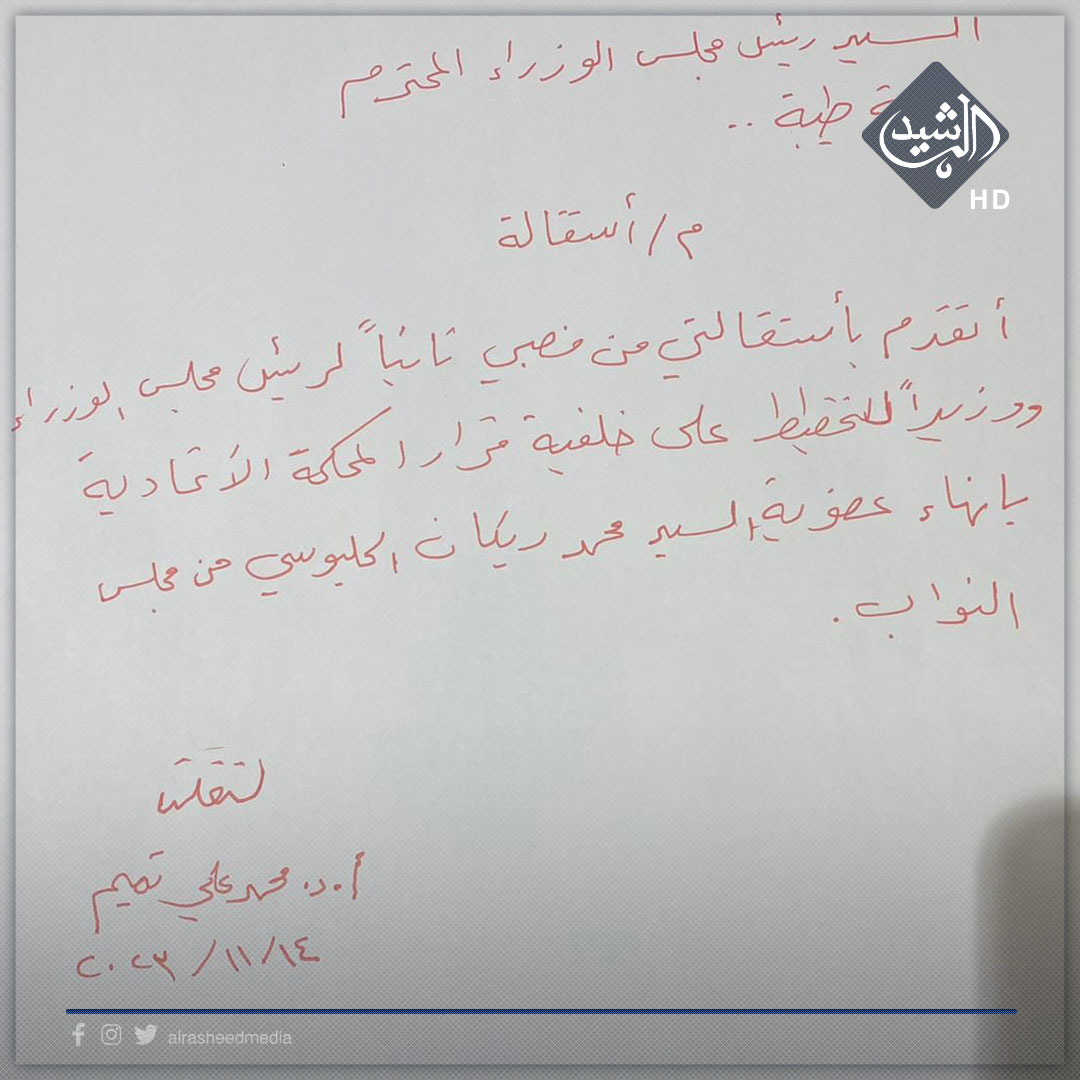 السيد رئيس مجلس الوزراء المحترم
ة طيبة ..
الرشيد
HD
م/ أستقالة
أتقدم بأستقالتي من منصبي نائباً لرئيس مجلس الوزراء
ووزيراً للتخطيط على خلفية قرار المحكمة الأتحادية
بانهاء عضوية السيد محمد ريكان الحلبوسي من مجلس
النواب .
أ.د. محمد علي تميم
١٤/ ١١/ ٢٠٢٣
alrasheedmedia